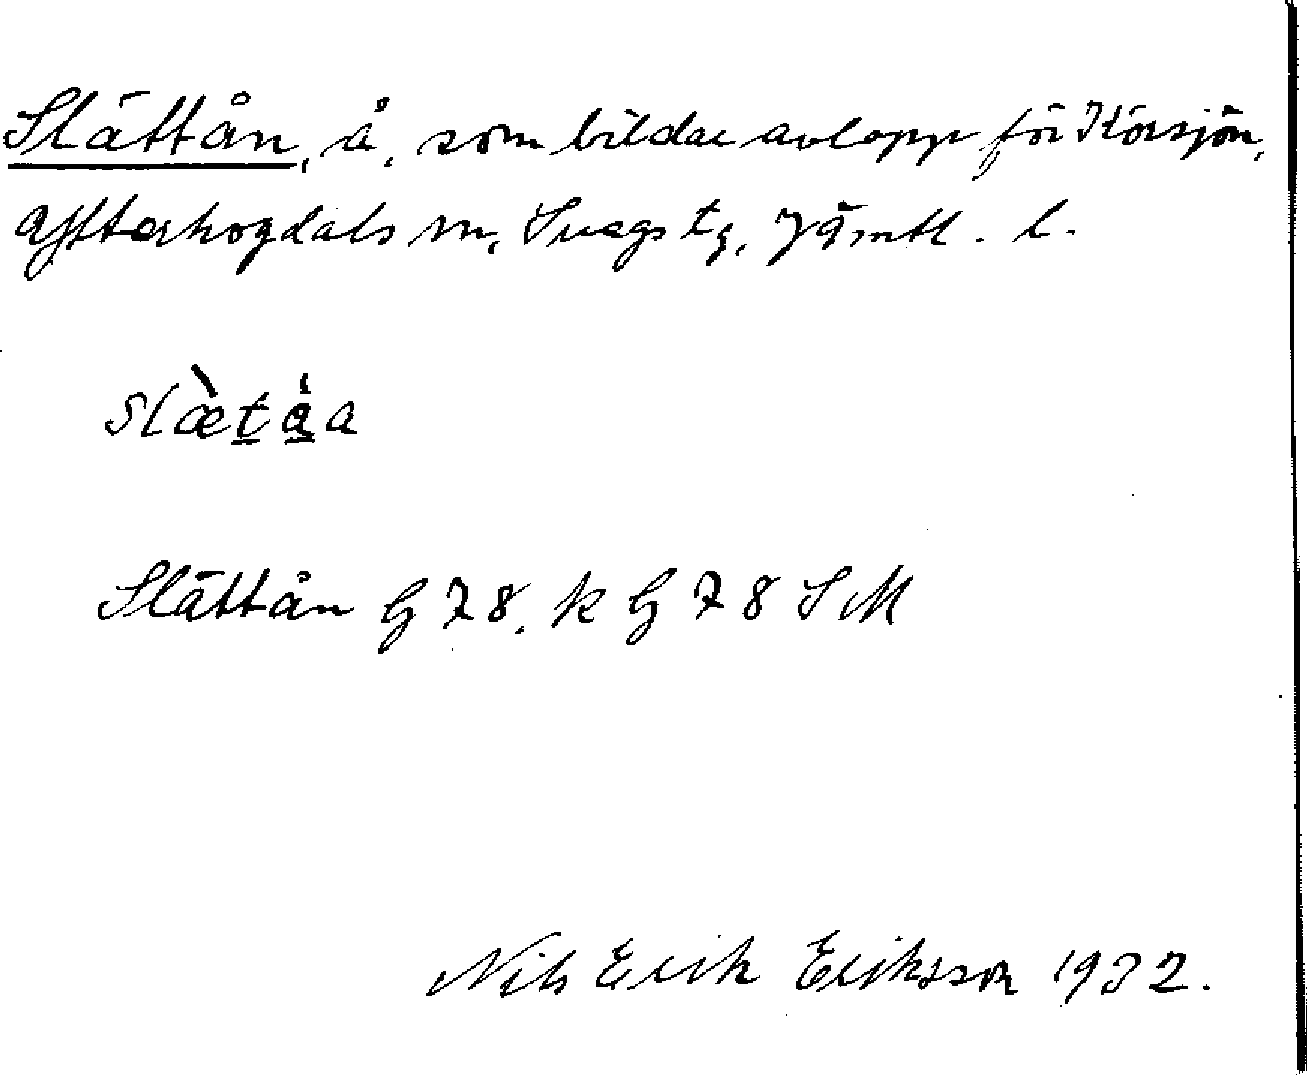 Slättån, å, som bildar avlopp för Körsjön,
Ytterhogdals sn, Svegs tg, Jämtl. l.
slæ̀tå̱a
Slättån G 78, k G 78 S M
Nils Erik Eriksson 1932.